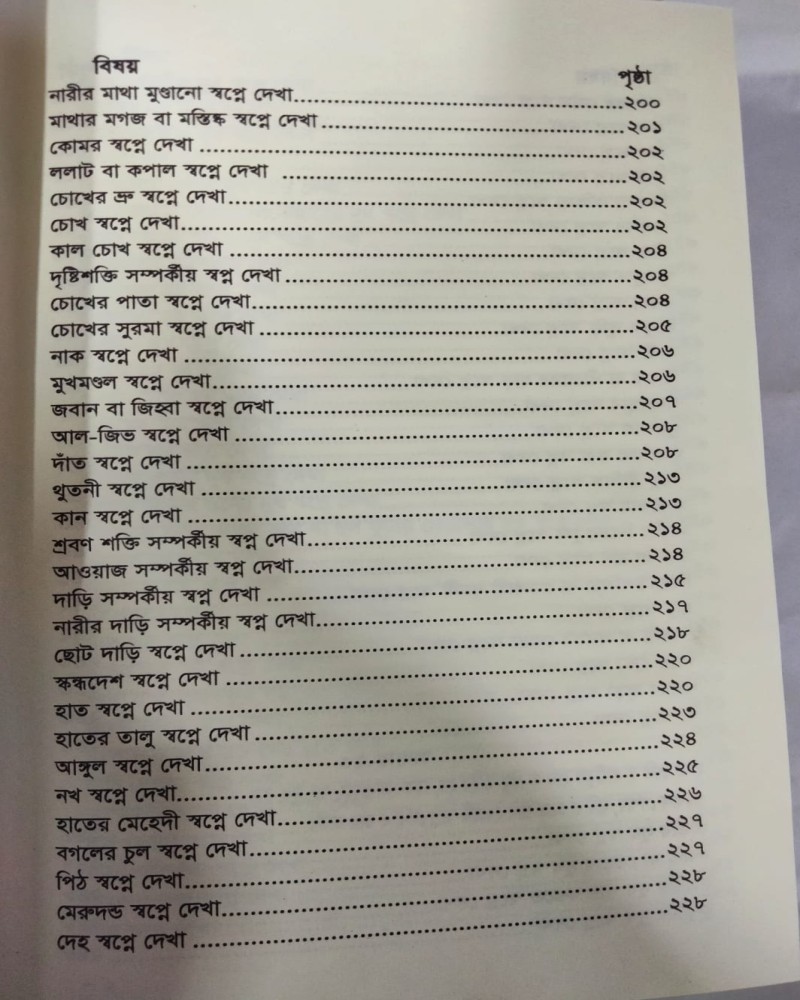 বিষয় পৃষ্ঠা
নারীর মাথা মুণ্ডানো স্বপ্নে দেখা....................২০০
মাথার মগজ বা মস্তিষ্ক স্বপ্নে দেখা....................২০১
কোমর স্বপ্নে দেখা ....................২০২
ললাট বা কপাল স্বপ্নে দেখা ....................২০২
চোখের ভ্রু স্বপ্নে দেখা....................২০২
চোখ স্বপ্নে দেখা....................২০২
কাল চোখ স্বপ্নে দেখা ....................২০৪
দৃষ্টিশক্তি সম্পর্কীয় স্বপ্ন দেখা ....................২০৪
চোখের পাতা স্বপ্নে দেখা....................২০৪
চোখের সুরমা স্বপ্নে দেখা ....................২০৫
নাক স্বপ্নে দেখা ....................২০৬
মুখমণ্ডল স্বপ্নে দেখা....................২০৬
জবান বা জিহ্বা স্বপ্নে দেখা....................২০৭
আল-জিভ স্বপ্নে দেখা ....................২০৮
দাঁত স্বপ্নে দেখা ....................২০৮
থুতনী স্বপ্নে দেখা ....................২১৩
কান স্বপ্নে দেখা ....................২১৩
শ্রবণ শক্তি সম্পর্কীয় স্বপ্ন দেখা....................২১৪
আওয়াজ সম্পর্কীয় স্বপ্ন দেখা....................২১৪
দাড়ি সম্পর্কীয় স্বপ্ন দেখা ....................২১৫
নারীর দাড়ি সম্পর্কীয় স্বপ্ন দেখা....................২১৭
ছোট দাড়ি স্বপ্নে দেখা ....................২১৮
স্কন্ধদেশ স্বপ্নে দেখা ....................২২০
হাত স্বপ্নে দেখা ....................২২০
হাতের তালু স্বপ্নে দেখা ....................২২৩
আঙ্গুল স্বপ্নে দেখা....................২২৪
নখ স্বপ্নে দেখা....................২২৫
হাতের মেহেদী স্বপ্নে দেখা....................২২৬
বগলের চুল স্বপ্নে দেখা....................২২৭
পিঠ স্বপ্নে দেখা....................২২৭
মেরুদন্ড স্বপ্নে দেখা....................২২৮
দেহ স্বপ্নে দেখা ....................২২৮